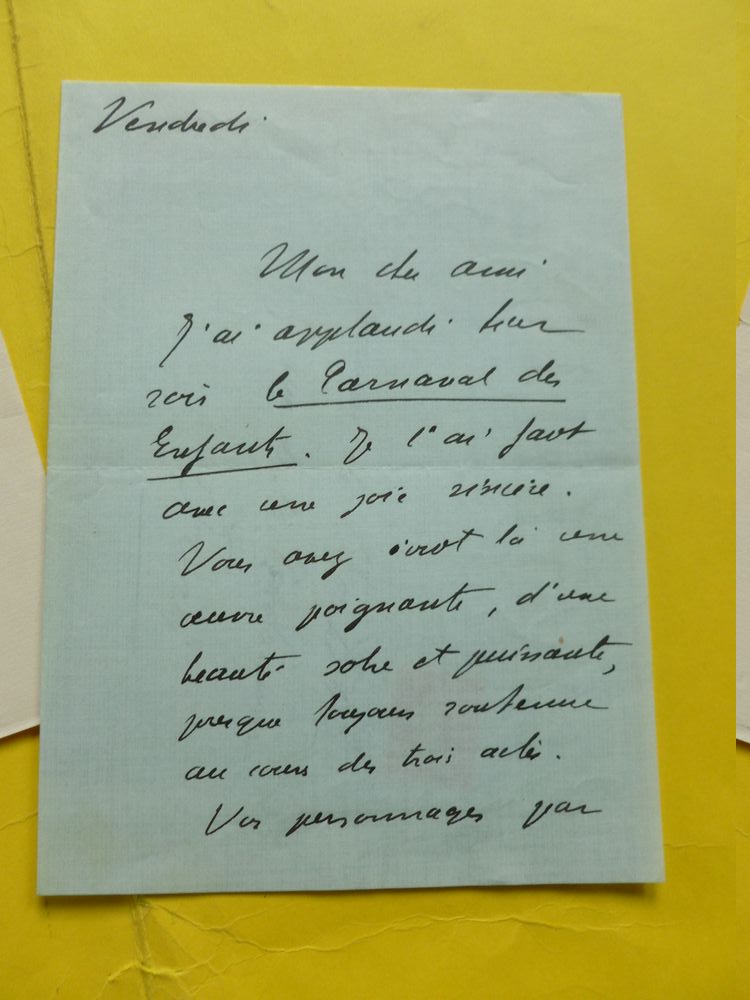 Vendredi
Mon cher ami
J'ai applaudi hier
soir le Carnaval des
Enfants. Je l'ai fait
avec une joie sincère.
Vous avez écrit là une
œuvre poignante, d'une
beauté sobre et puissante,
presque toujours soutenue
au cours des trois actes.
Vos personnages par